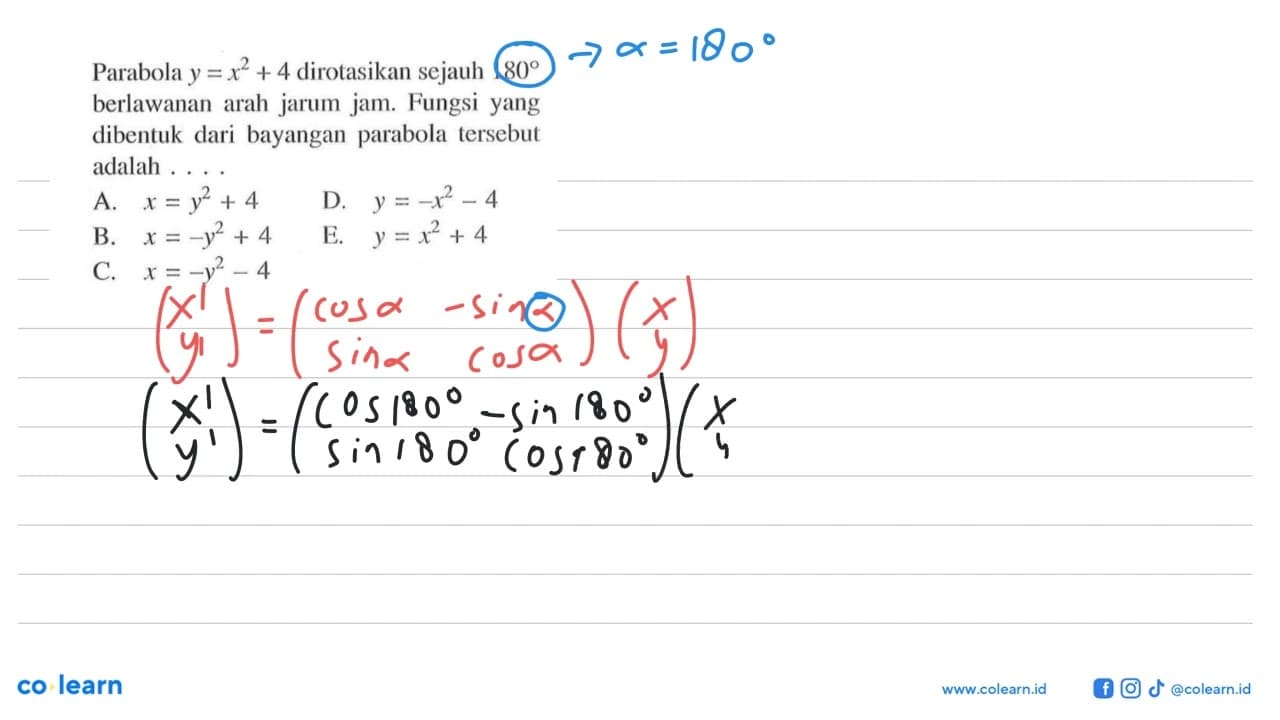 Parabola y = x² + 4 dirotasikan sejauh 180° → α = 180°
berlawanan arah jarum jam. Fungsi yang
dibentuk dari bayangan parabola tersebut
adalah . . . .
A. x = y² + 4 D. y = –x² – 4
B. x = –y² + 4 E. y = x² + 4
C. x = –y² – 4
(x' y') = (cos α -sin α sin α cos α) (x y)
(x' y') = (cos 180° -sin 180° sin 180° cos 180°) (x y
co learn
www.colearn.id @colearn.id